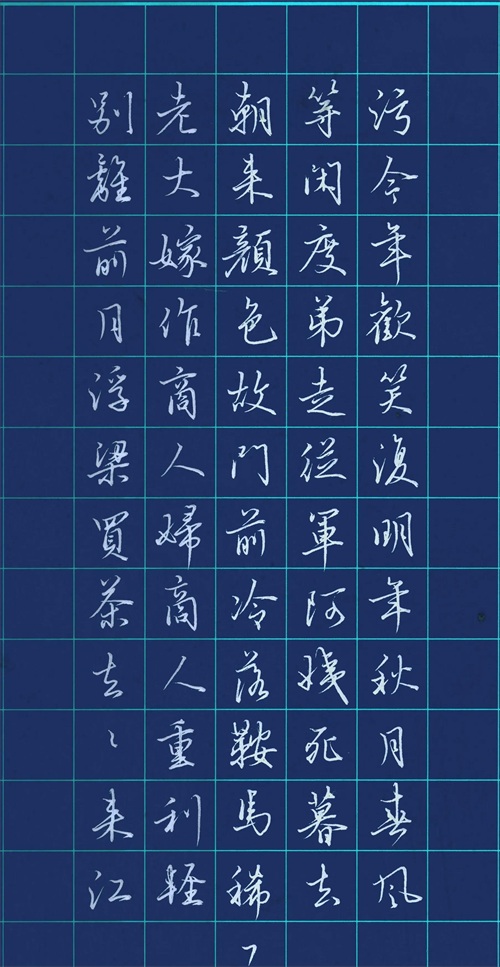 污今年歡笑復明年秋月春風
等閑度弟走從軍阿姨死暮去
朝來顏色故門前冷落鞍馬稀
老大嫁作商人婦商人重利輕
別離前月浮梁買茶去〻來江
7